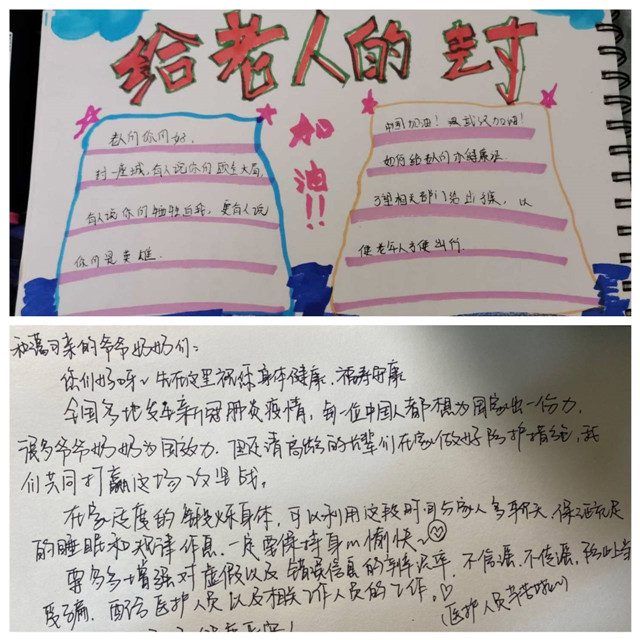 给老人的封
加油!!
老人们你们好,
封一座城,有人说你们顾全大局,
有人说你们牺牲自我,更有人说
你们是英雄.
中国加油!武汉加油!
如何给老人们办健康
相关部门给出 以
便老年人方便出行.
和蔼可亲的爷爷奶奶们:
你们好呀~先在这里祝你身体健康.福寿安康
全国各地发生新冠肺炎疫情,每一位中国人都想为国家出一份力.
很多爷爷奶奶为国效力.但还请高龄的长辈们在家做好防护措施,我
们共同打赢这场攻坚战。
在家适度的锻炼身体,可以利用这段时间与家人多聊天,保证充足
的睡眠和规律作息.一定要保持身心愉快~
要多多增强对虚假以及错误信息的辨识率.不信谣.不传谣,防止上当
受骗.配合医护人员以及相关工作人员的工作。
(医护人员辛苦啦~)